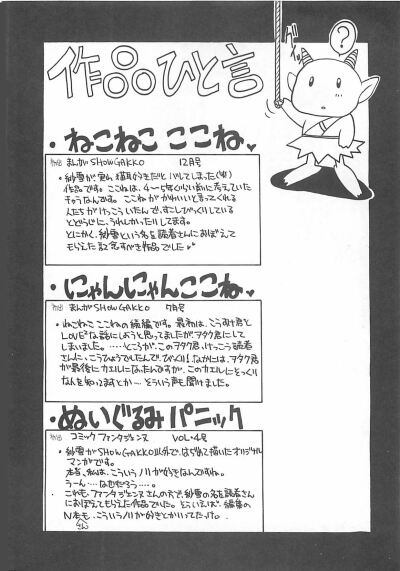 作品ひと言
?
・ねこねこ ここね♥
初出 まんがSHOWGAKKO 12月号
・紗雪が実は猫耳好きだとバレてしまった(笑)
作品です。ここねは、4〜5年くらい前に考えていた
キャラなんです。ここねがかわいいと言ってくれる
人たちがけっこういたんで、すこしびっくりしている
とどうじに、うれしかったりしてます。
とにかく、紗雪という名を読者さんにおぼえて
もらえた記念すべき作品でした♥
・にゃんにゃんここね♥
初出 まんがSHOWGAKKO 7月号
・ねこねこ ここねの続編です。最初は、こうみ君と
LOVE²な話にしようと思ってましたが、アタク君にして
しまいました。……ところが、このアタク君、けっこう読者
さんに、こうひょうでしたんで、びっくり!なかには、アタク君
が最後にカエルになったんですが、このカエルにそっくり
なんを知ってますとか…そういう声も聞けました。
・ぬいぐるみパニック
初出 コミックファンタジェンヌ VOL.4号
・紗雪がSHOWGAKKO以外で、はじめて描いたオリジナル
マンガです。
本当、私は、こういうノリが好きなんですね。
うーん……なぜだろう……。
これも、ファンタジェンヌさんの方で、紗雪の名を読者さん
におぼえてもらえた作品でした。そういえば、編集の
N本さんも、こういうノリが好きとかいってたっけ。